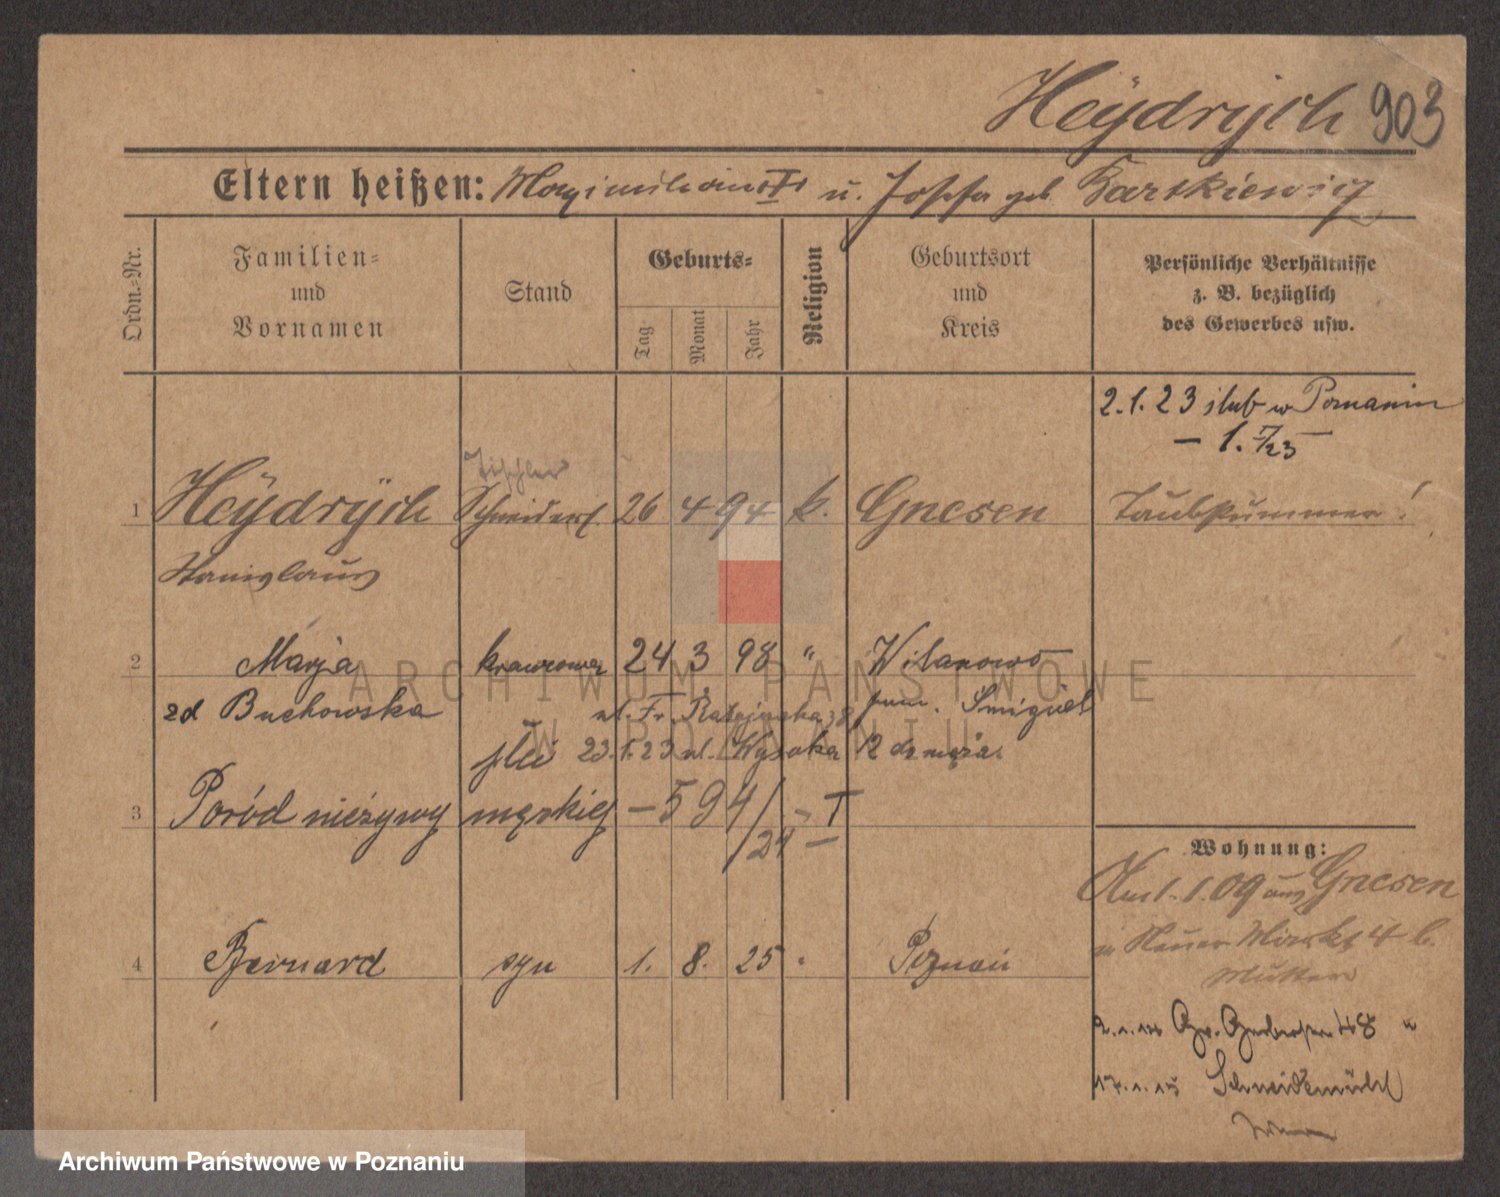 Heÿdrÿch 903
Eltern heißen: Maximilian u. Josefa geb. Bartkiewicz
Ordn.-Nr.
Familien-
und
Vornamen
Stand
Geburts-
Tag
Monat
Jahr
Religion
Geburtsort
und
Kreis
Persönliche Verhältnisse
z. B. bezüglich
des Gewerbes usw.
2.1.23 ślub w Poznaniu
– 1. 7/23 –
Tischler
1 Heÿdrÿch Schneiderl. 26 4 94 k. Gnesen Taubstummer!
Stanislaus
2 Marja krawcowa 24 3 98 " Wilanowo
zd Buchowska ul. Fr. Ratajczaka pow. Śmigiel
23.1.23 ul. Wysoka 12 do męża.
3 Poród nieżywy męskiej płci – 5 9 4/24 – T –
Wohnung:
1.1.09 aus Gnesen
Neuer Markt 4 b.
Mutter
4 Bernard syn 1. 8. 25 " Poznań
2.1.14 Gr. Gerberstr. 48 "
17.1.15 Schneidemühl
ARCHIWUM PAŃSTWOWE
W POZNANIU
Archiwum Państwowe w Poznaniu